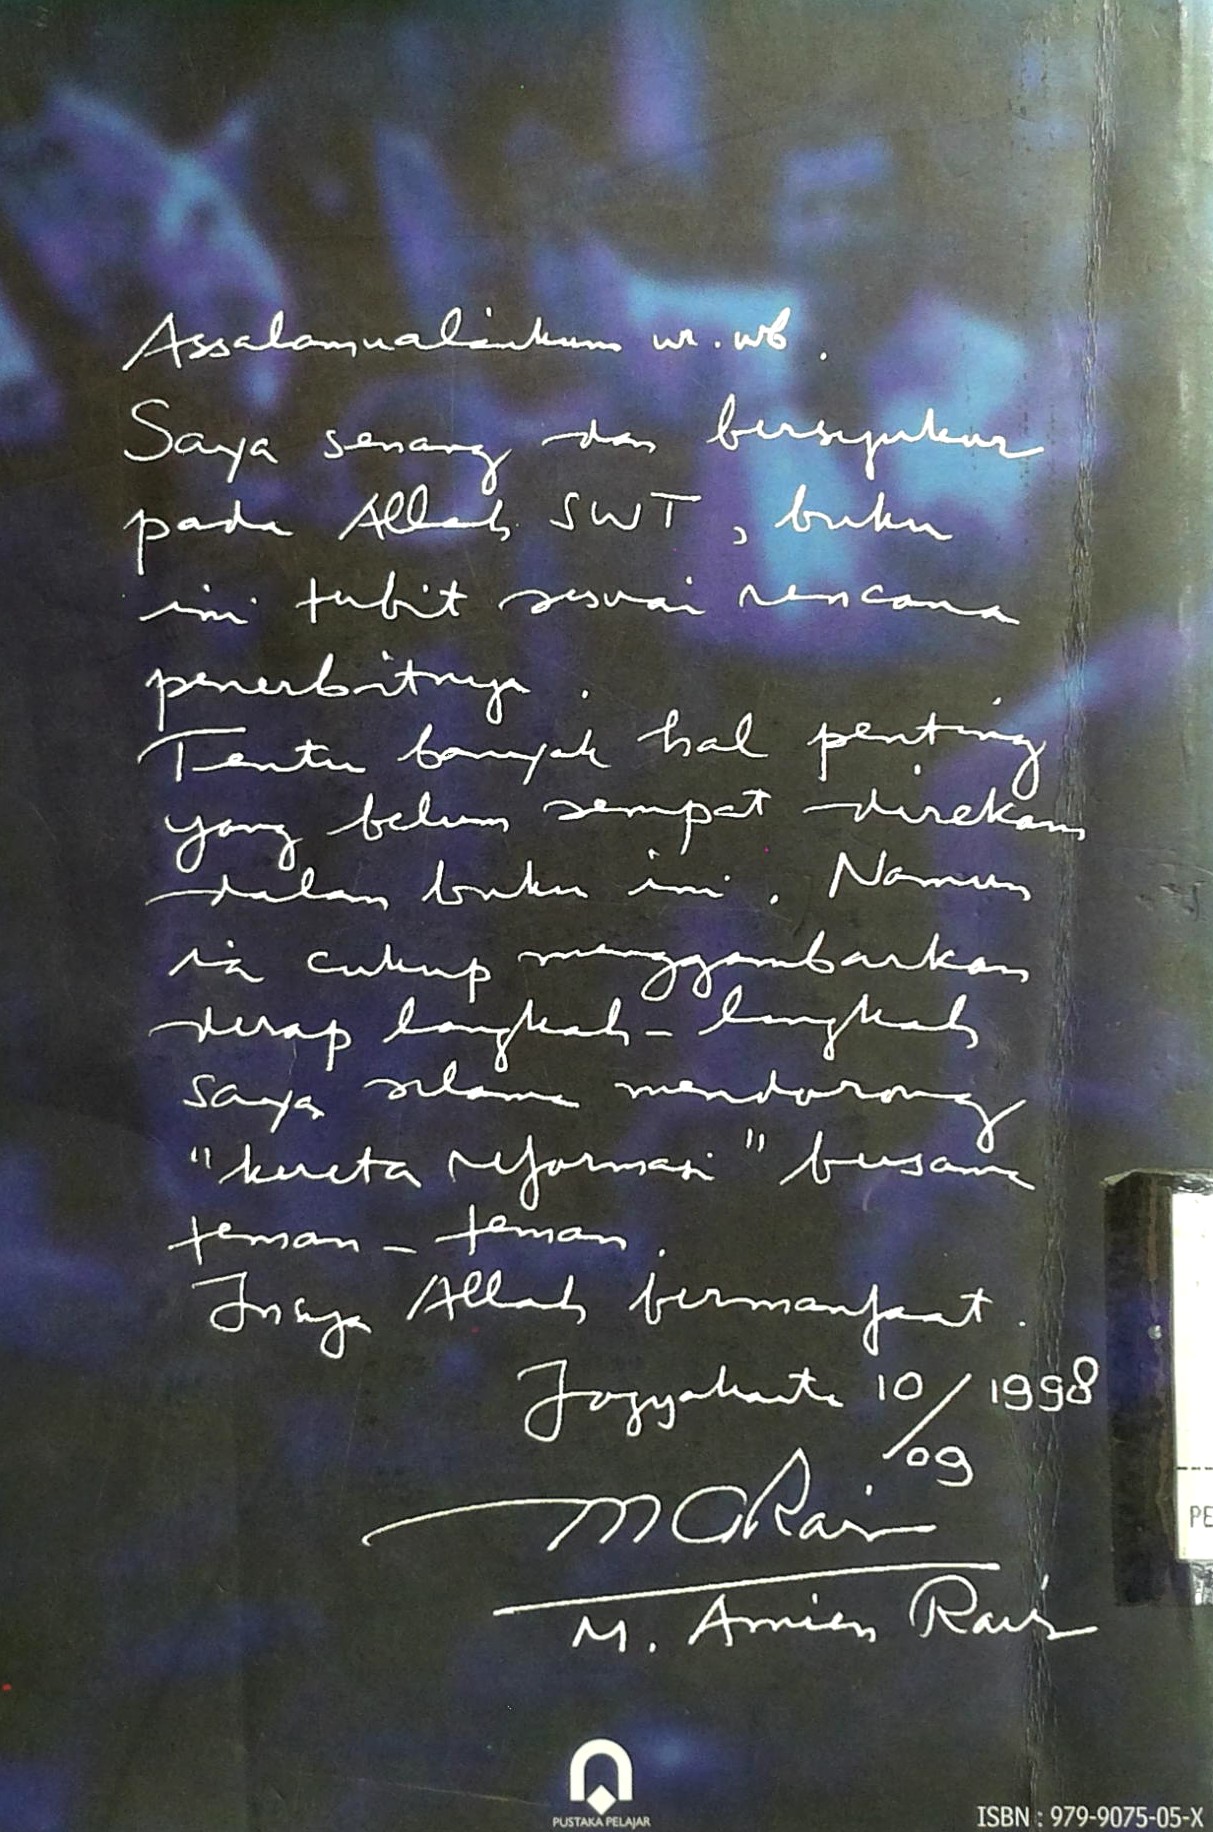 Assalamualaikum wr. wb.
Saya senang dan bersyukur
pada Allah SWT, buku
ini terbit sesuai rencana
penerbitnya.
Tentu banyak hal penting
yang belum sempat direkam
dalam buku ini. Namun
ia cukup menggambarkan
derap langkah-langkah
saya selama mendorong
"kereta reformasi" bersama
teman-teman.
Insya Allah bermanfaat.
Jogyakarta 10/09 1998
MARais
M. Amien Rais
PE
PUSTAKA PELAJAR
ISBN : 979-9075-05-X